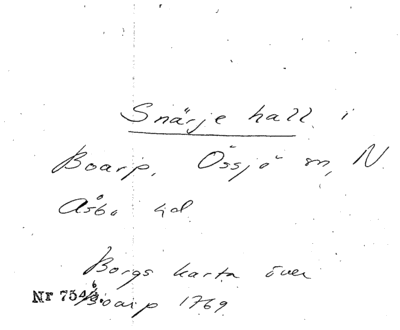 Snärje hall i
Boarp, Össjö sn, N
Åsbo hd
Borgs karta över
Boarp 1769
Nr 754